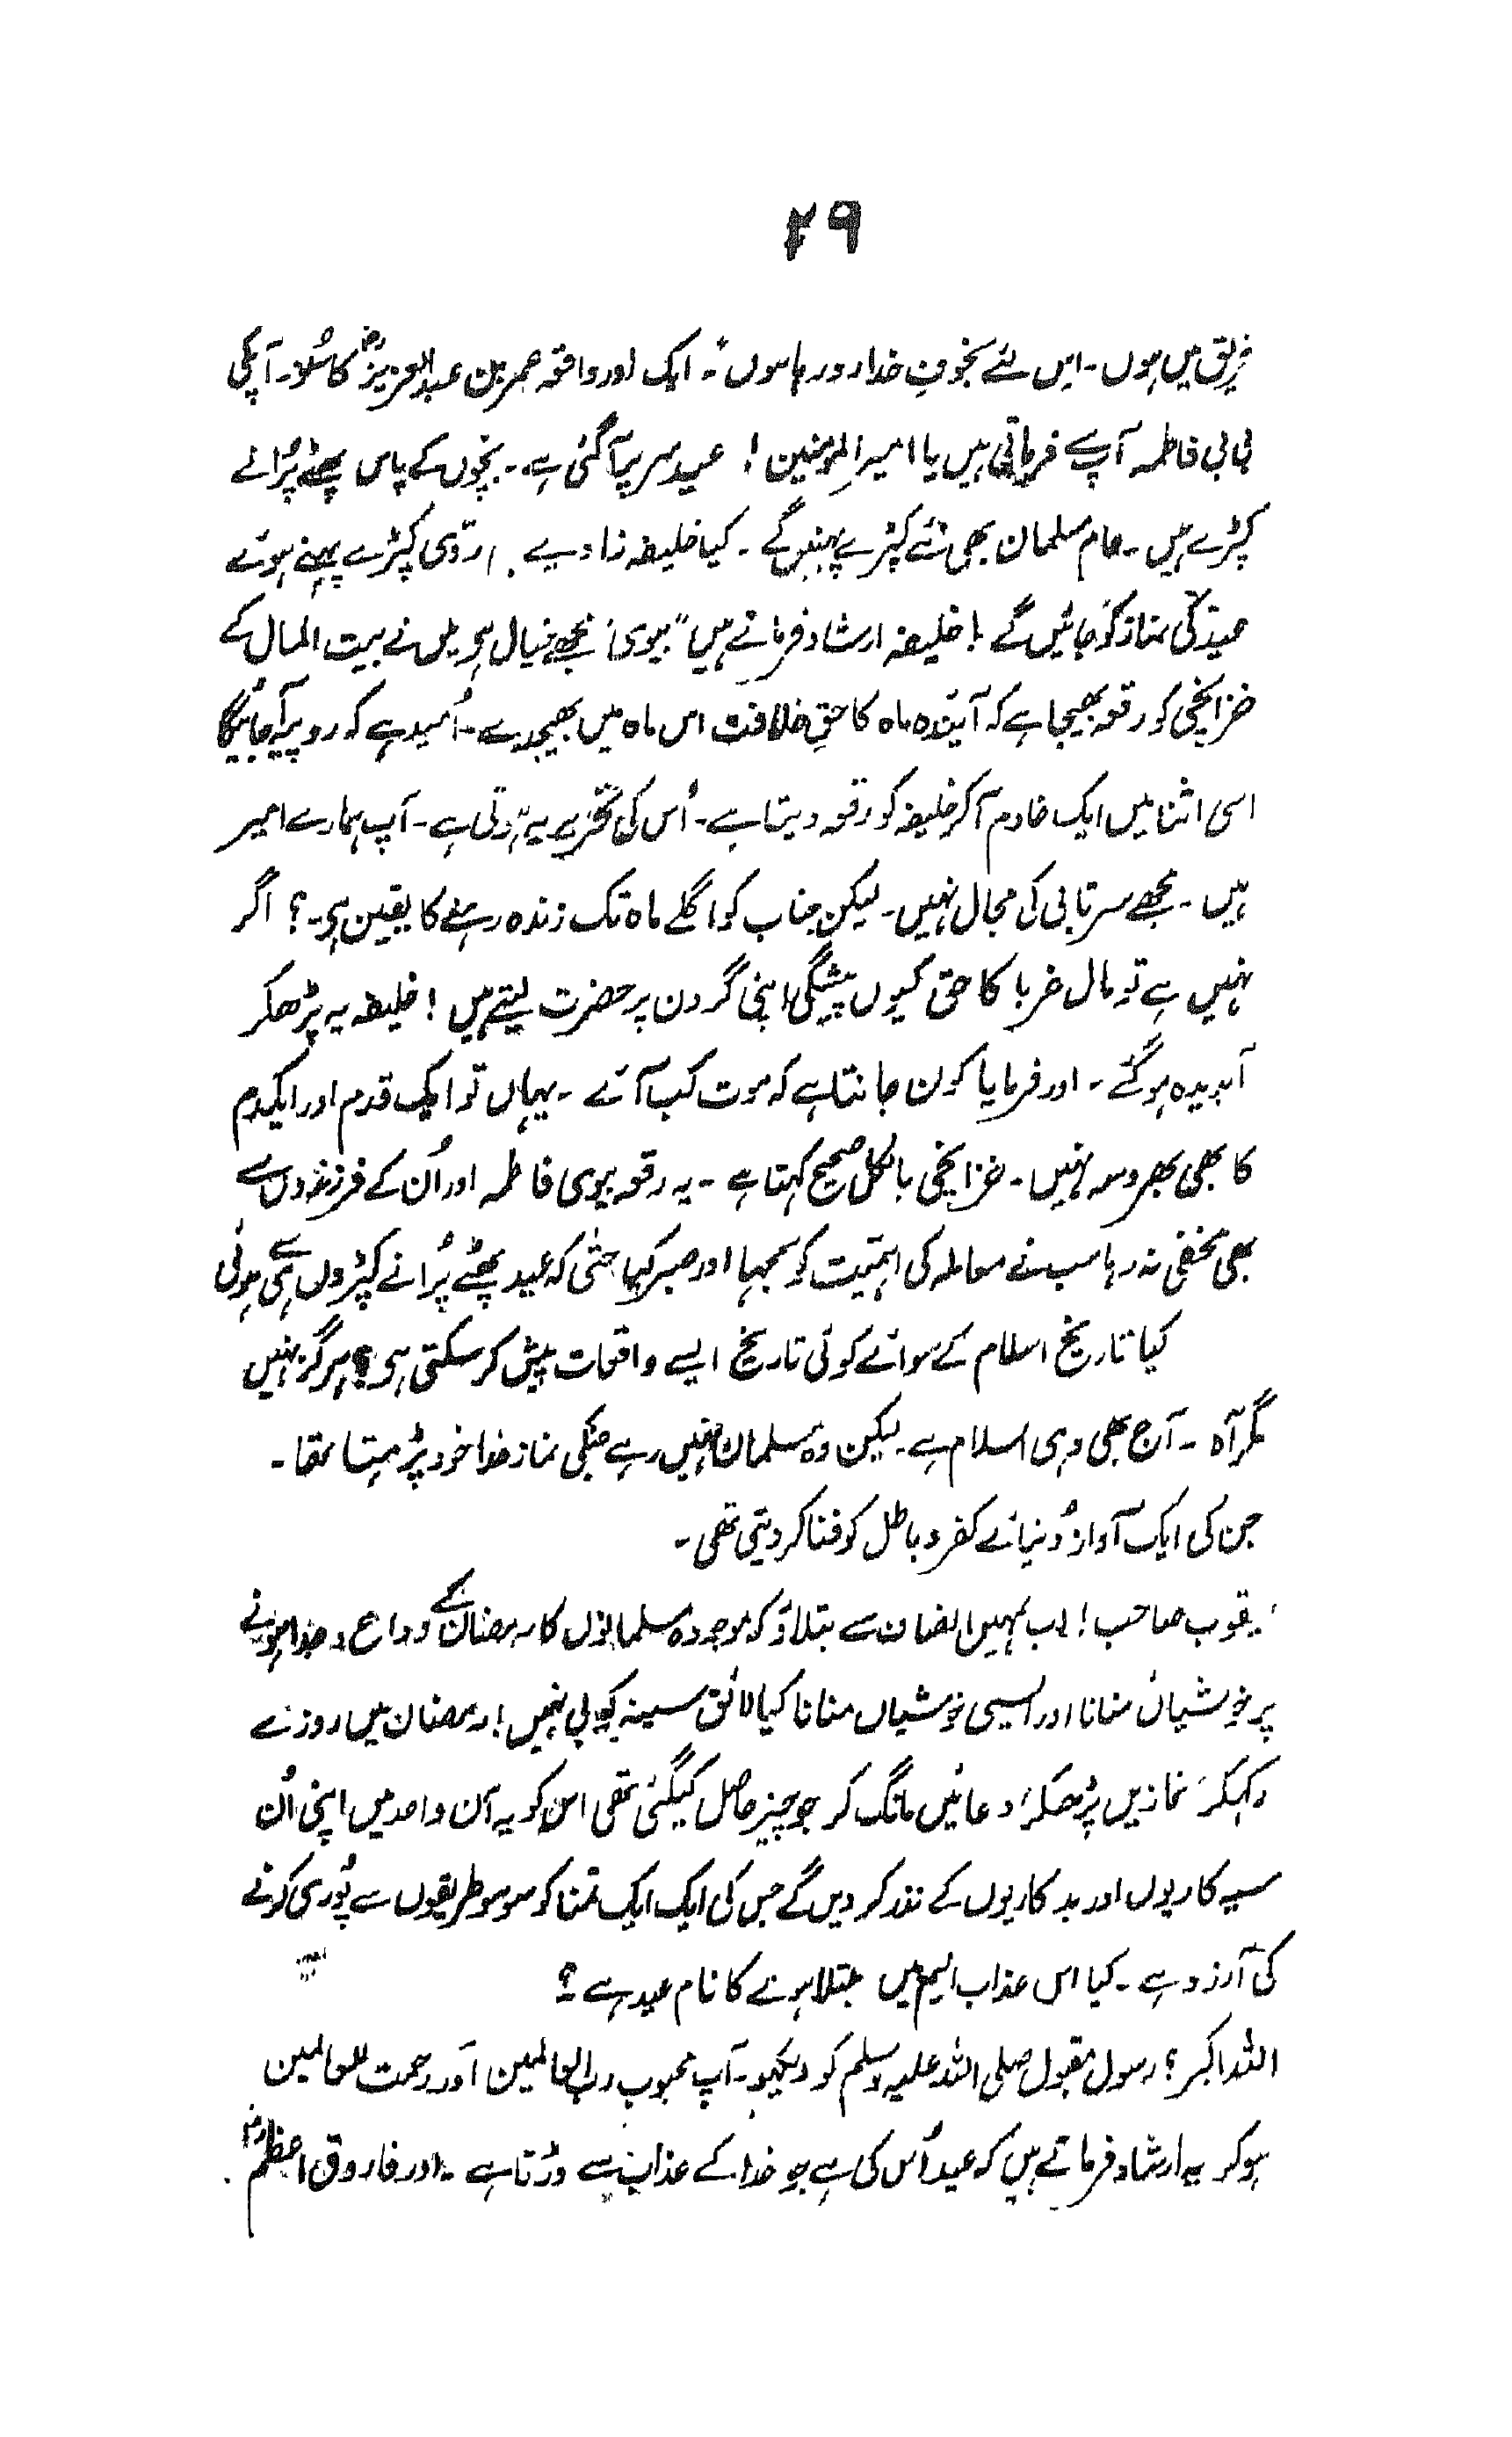 ۲۹
فریق میں ہوں۔ اس لئے بخوفِ خدا رو رہا ہوں"۔ ایک اور واقعہ عمر بن عبدالعزیزؓ کا سُنو۔ آپکی
بی بی فاطمہ آپ سے فرماتی ہیں یا امیر المومنین! عید سر پر آ گئی ہے۔ بچوں کے پاس پھٹے پُرانے
کپڑے ہیں۔ عام مسلمان بھی نئے کپڑے پہنیں گے۔ کیا خلیفہ زادے ردّی کپڑے پہنے ہوئے
عید کی نماز کو جائیں گے! خلیفہ ارشاد فرماتے ہیں" بیوی! مجھے خیال ہی میں نے بیت المال کے
خزانچی کو رقعہ بھیجا ہے کہ آیندہ ماہ کا حقِ خلافت اس ماہ میں بھیجدے۔ اُمید ہے کہ روپیہ آجائیگا
اسی اثنا میں ایک خادم آ کر خلیفہ کو رقعہ دیتا ہے۔ اُس کی تحریر یہ ہوتی ہے۔ آپ ہمارے امیر
ہیں۔ مجھے سرتابی کی مجال نہیں۔ لیکن جناب کو اگلے ماہ تک زندہ رہنے کا یقین ہی۔؟ اگر
نہیں ہے تو مال غربا کا حق کیوں پیشگی اپنی گردن پر حضرت لیتے ہیں! خلیفہ یہ پڑھکر
آبدیدہ ہو گئے۔ اور فرمایا کون جانتا ہے کہ موت کب آئے۔ یہاں تو ایک قدم اور ایکدم
کا بھی بھروسہ نہیں۔ خزانچی بالکل صحیح کہتا ہے۔ یہ رقعہ بیوی فاطمہ اور اُن کے فرزندوں سے
بھی مخفی نہ رہا سب نے معاملہ کی اہمیّت کو سمجھا اور صبر کیا حتٰی کہ عید پھٹے پُرانے کپڑوں سے ہی ہوئی
کیا تاریخ اسلام کے سوائے کوئی تاریخ ایسے واقعات پیش کر سکتی ہی؟ ہرگز نہیں
مگر آہ۔ آج بھی وہی اسلام ہے۔ لیکن وہ مسلمان نہیں رہے جنکی نماز خدا خود پڑہتا تھا۔
جن کی ایک آواز دُنیائے کفر و باطل کو فنا کر دیتی تھی۔
یعقوب صاحب! اب تمہیں انصاف سے بتلاؤ کہ موجودہ مسلمانوں کا رمضان کے وداع و جدا ہونے
پر خوشیاں منانا اور ایسی خوشیاں منانا کیا لائق سینہ کوبی نہیں! رمضان میں روزے
رکھکر نمازیں پڑھکر دعائیں مانگ کر جو چیز حاصل کیگئی تھی اس کو یہ آن واحد میں اپنی اُن
سیہ کاریوں اور بدکاریوں کے نذر کر دیں گے جس کی ایک ایک تمنا کو سو سو طریقوں سے پُوری کرنے
کی آرزو ہے۔ کیا اس عذاب الیم میں مبتلا ہونے کا نام عید ہے؟
اللہ اکبر؟ رسول مقبول صلی اللہ علیہ وسلم کو دیکھو۔ آپ محبوب رب العالمین اور رحمت للعالمین
ہو کر یہ ارشاد فرماتے ہیں کہ عید اُس کی ہے جو خدا کے عذاب سے ڈرتا ہے۔ اور فاروق اعظمؓ